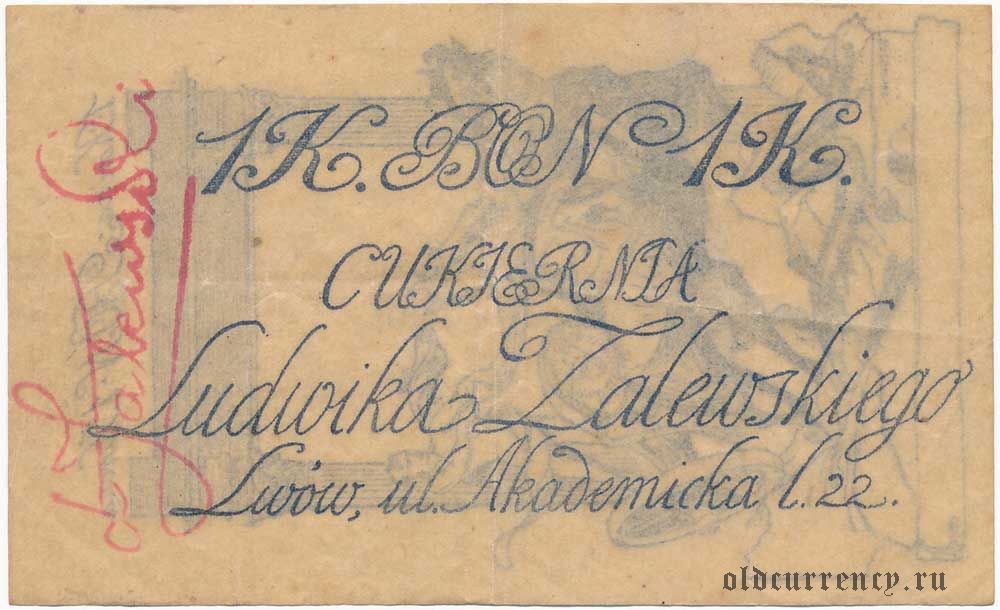 1K. BON 1K.
CUKIERNIA
Ludwika Zalewskiego
Lwów, ul. Akademicka l. 22.
L Zalewski
oldcurrency.ru